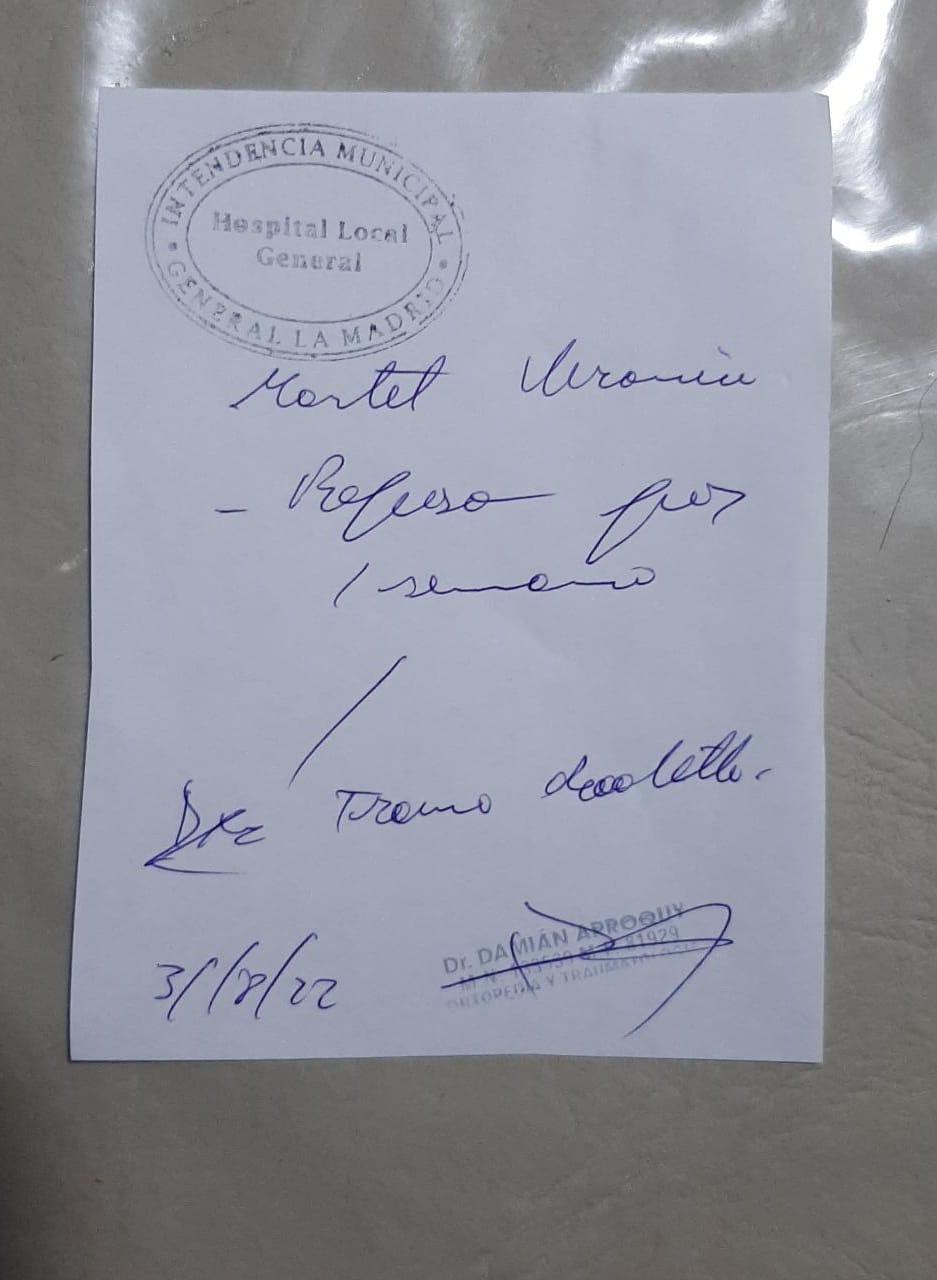 INTENDENCIA MUNICIPAL
Hospital Local
General
GENERAL LA MADRID
Martel Veronica
- Reposo por
1 semana
Dx: Trauma
31/8/22
Dr. DAMIÁN ARROQUY
81929
ORTOPEDIA Y TRAUMATOLOGIA